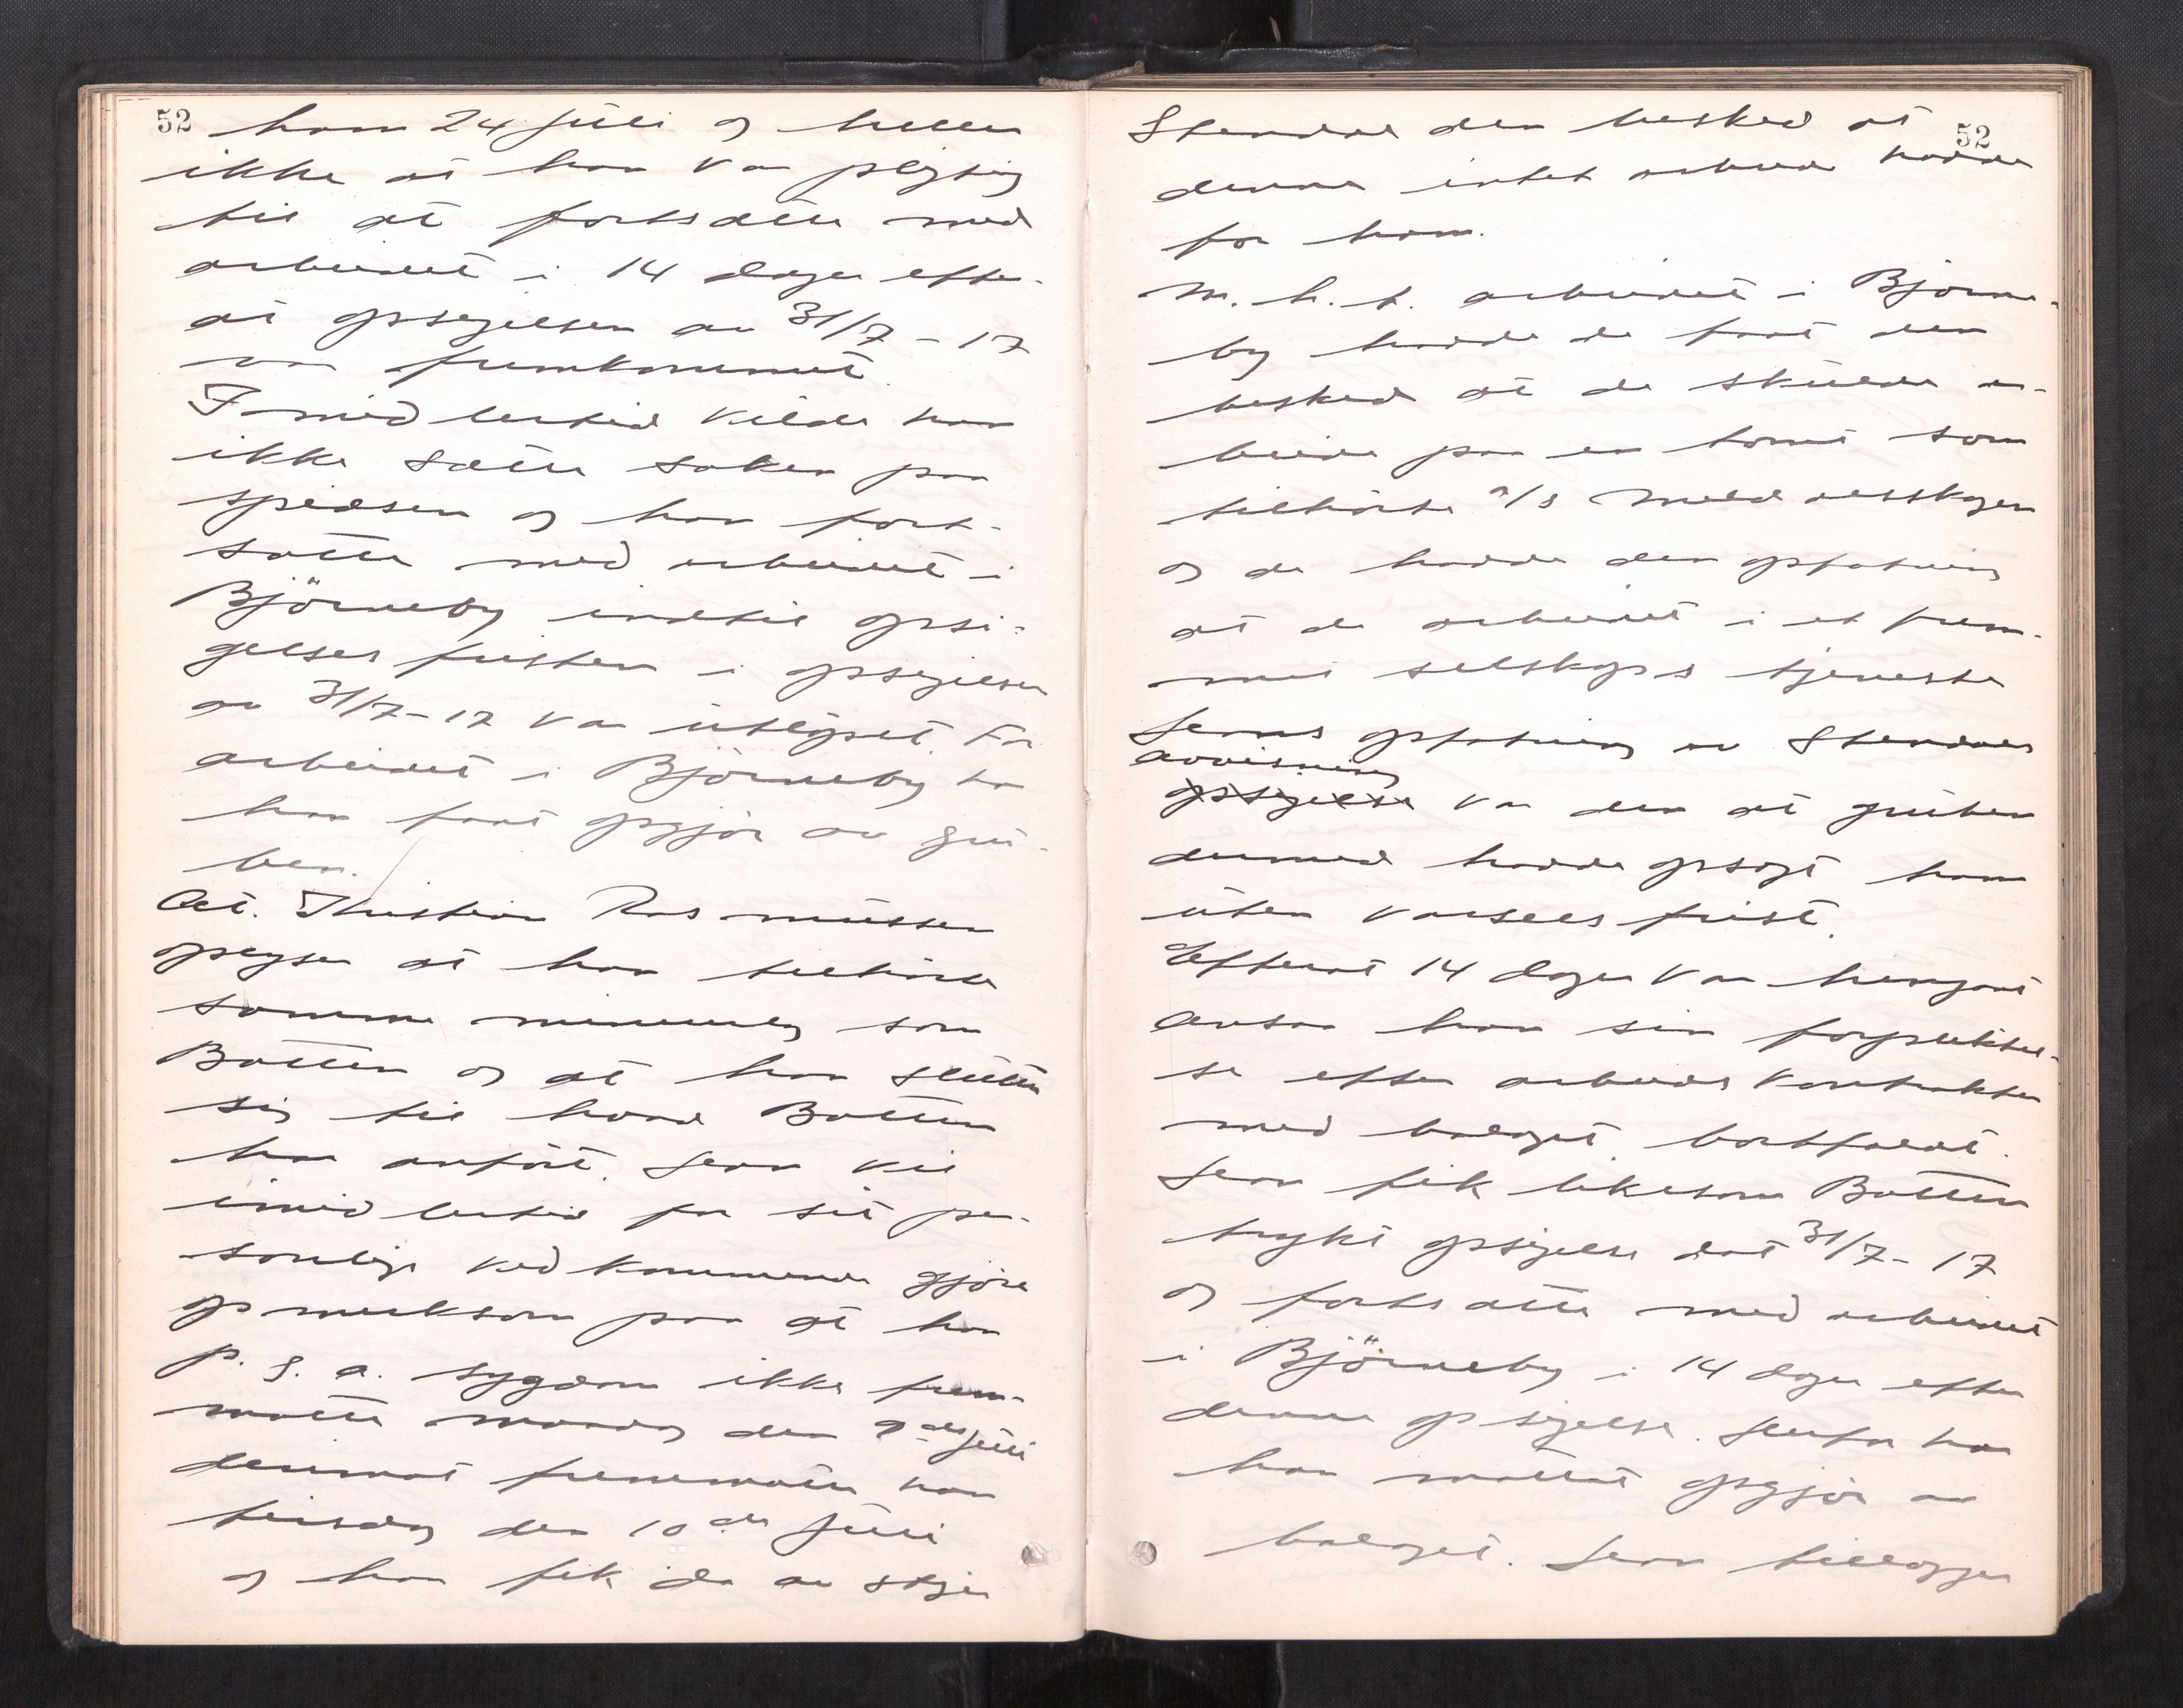 52
ham 24 juli og heller
ikke at han var pligtig
til at fortsætte med
arbeidet i 14 dager efter
at opsigelsen av 31/7-17
var fremkommet.
Imidlertid vilde han
ikke sætte saken paa
spidsen og han fort-
satte med arbeidet i
Björneby indtil opsi-
gelses fristen i opsigelsen
av 31/7-17 var utløpet. For
arbeidet i Björneby har
han faat opgjør av gru-
ben.
Cit. Kristian Rasmussen
oplyser at han tilhörte
samme minelag som
Botten og at han slutter
sig til hvad Botten
har anført. Han vil
imidlertid for sit per-
sonlige vedkommende gjöre
opmerksom paa at han
p. g. a. sygdom ikke frem-
møtte mandag den 9de juli
derimot fremmøtte han
tirsdag den 10de juli
og han fik da av stiger
52
Stendal den besked at
denne intet arbeide hadde
for ham.
M. h. t. arbeidet i Björne-
by hadde de faat den
besked at de skulde ar-
beide paa en tomt som
tilhörte a/s
og de hadde den opfatning
at de arbeidet i et frem-
met selskaps tjeneste
Hans opfatning av Stendals
avvisning
opsigelse var den at gruben
dermed hadde opsagt ham
uten varsels frist.
Efterat 14 dager var hengaat
ansaa han sin forpliktel-
se efter arbeidskontrakten
med bolaget bortfaldt.
Han fik likesom Botten
trykt opsigelse dat 31/7-17
og fortsatte med arbeidet
i Björneby i 14 dager efter
denne opsigelse. Herfor har
han mottat opgjør av
bolaget. Han tillægger